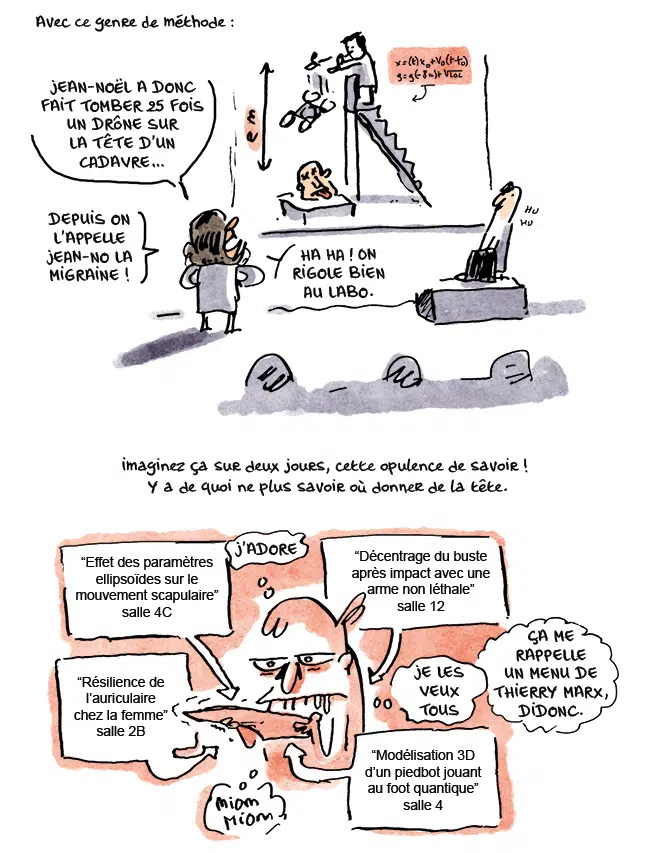 Avec ce genre de méthode :
JEAN-NOËL A DONC
FAIT TOMBER 25 FOIS
UN DRÔNE SUR
LA TÊTE D'UN
CADAVRE...
2 m
DEPUIS ON
L'APPELLE
JEAN-NO LA
MIGRAINE !
HA HA ! ON
RIGOLE BIEN
AU LABO.
HU
HU
imaginez ça sur deux jours, cette opulence de savoir !
Y a de quoi ne plus savoir où donner de la tête.
"Effet des paramètres
ellipsoïdes sur le
mouvement scapulaire"
salle 4C
J'ADORE
"Décentrage du buste
après impact avec une
arme non léthale"
salle 12
"Résilience de
l'auriculaire
chez la femme"
salle 2B
JE LES
VEUX
TOUS
ÇA ME
RAPPELLE
UN MENU DE
THIERRY MARX,
DIDONC.
"Modélisation 3D
d'un piedbot jouant
au foot quantique"
salle 4
MIOM
MIOM